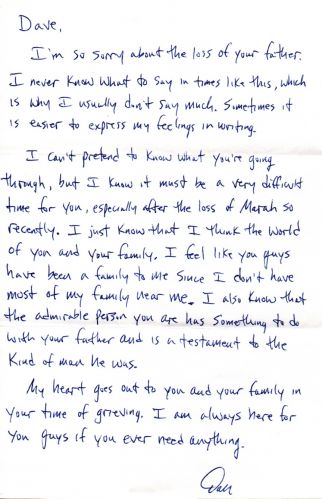 Dave,
I'm so sorry about the loss of your father.
I never know what to say in times like this, which
is why I usually don't say much. Sometimes it
is easier to express my feelings in writing.
I can't pretend to know what you're going
through, but I know it must be a very difficult
time for you, especially after the loss of Marah so
recently. I just know that I think the world
of you and your family. I feel like you guys
have been a family to me since I don't have
most of my family near me. I also know that
the admirable person you are has something to do
with your father and is a testament to the
kind of man he was.
My heart goes out to you and your family in
your time of grieving. I am always here for
you guys if you ever need anything.